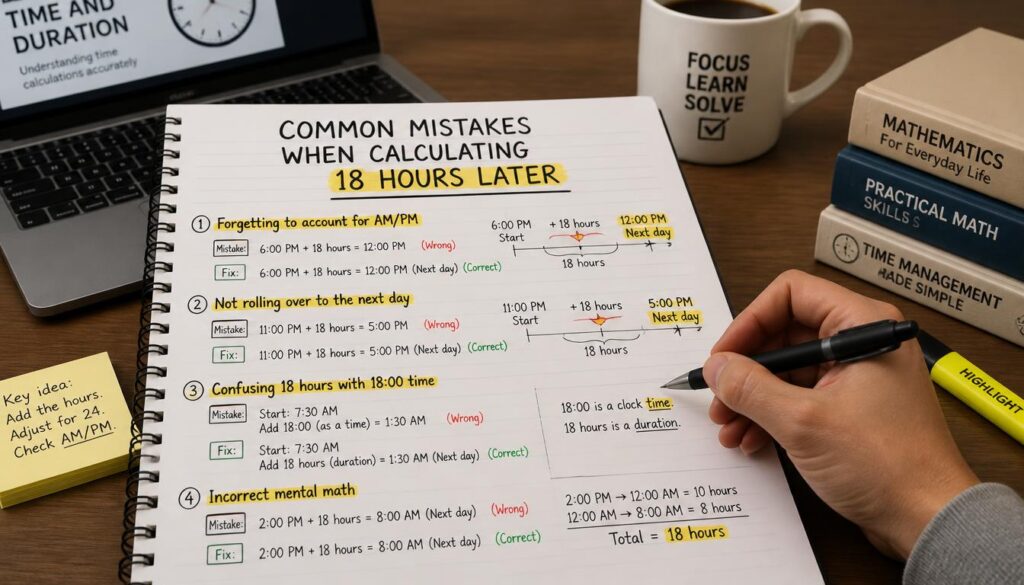 TIME AND
DURATION
Understanding time
calculations accurately
FOCUS
LEARN
SOLVE
MATHEMATICS
For Everyday Life
PRACTICAL MATH
SKILLS
TIME MANAGEMENT
MADE SIMPLE
HIGHLIGHT
Key idea:
Add the hours.
Adjust for 24.
Check AM/PM.
COMMON MISTAKES
WHEN CALCULATING
18 HOURS LATER
1 Forgetting to account for AM/PM
Mistake: 6:00 PM + 18 hours = 12:00 PM (Wrong)
Fix: 6:00 PM + 18 hours = 12:00 PM (Next day) (Correct)
6:00 PM + 18 hours 12:00 PM
Start Next day
18 hours
2 Not rolling over to the next day
Mistake: 11:00 PM + 18 hours = 5:00 PM (Wrong)
Fix: 11:00 PM + 18 hours = 5:00 PM (Next day) (Correct)
11:00 PM + 18 hours 5:00 PM
Start Next day
18 hours
3 Confusing 18 hours with 18:00 time
Mistake: Start: 7:30 AM
Add 18:00 (as a time) = 1:30 AM (Wrong)
Fix: Start: 7:30 AM
Add 18 hours (duration) = 1:30 AM (Next day) (Correct)
18:00 is a clock time.
18 hours is a duration.
4 Incorrect mental math
Mistake: 2:00 PM + 18 hours = 8:00 AM (Next day) (Wrong)
Fix: 2:00 PM + 18 hours = 8:00 AM (Next day) (Correct)
2:00 PM → 12:00 AM = 10 hours
12:00 AM → 8:00 AM = 8 hours
Total = 18 hours